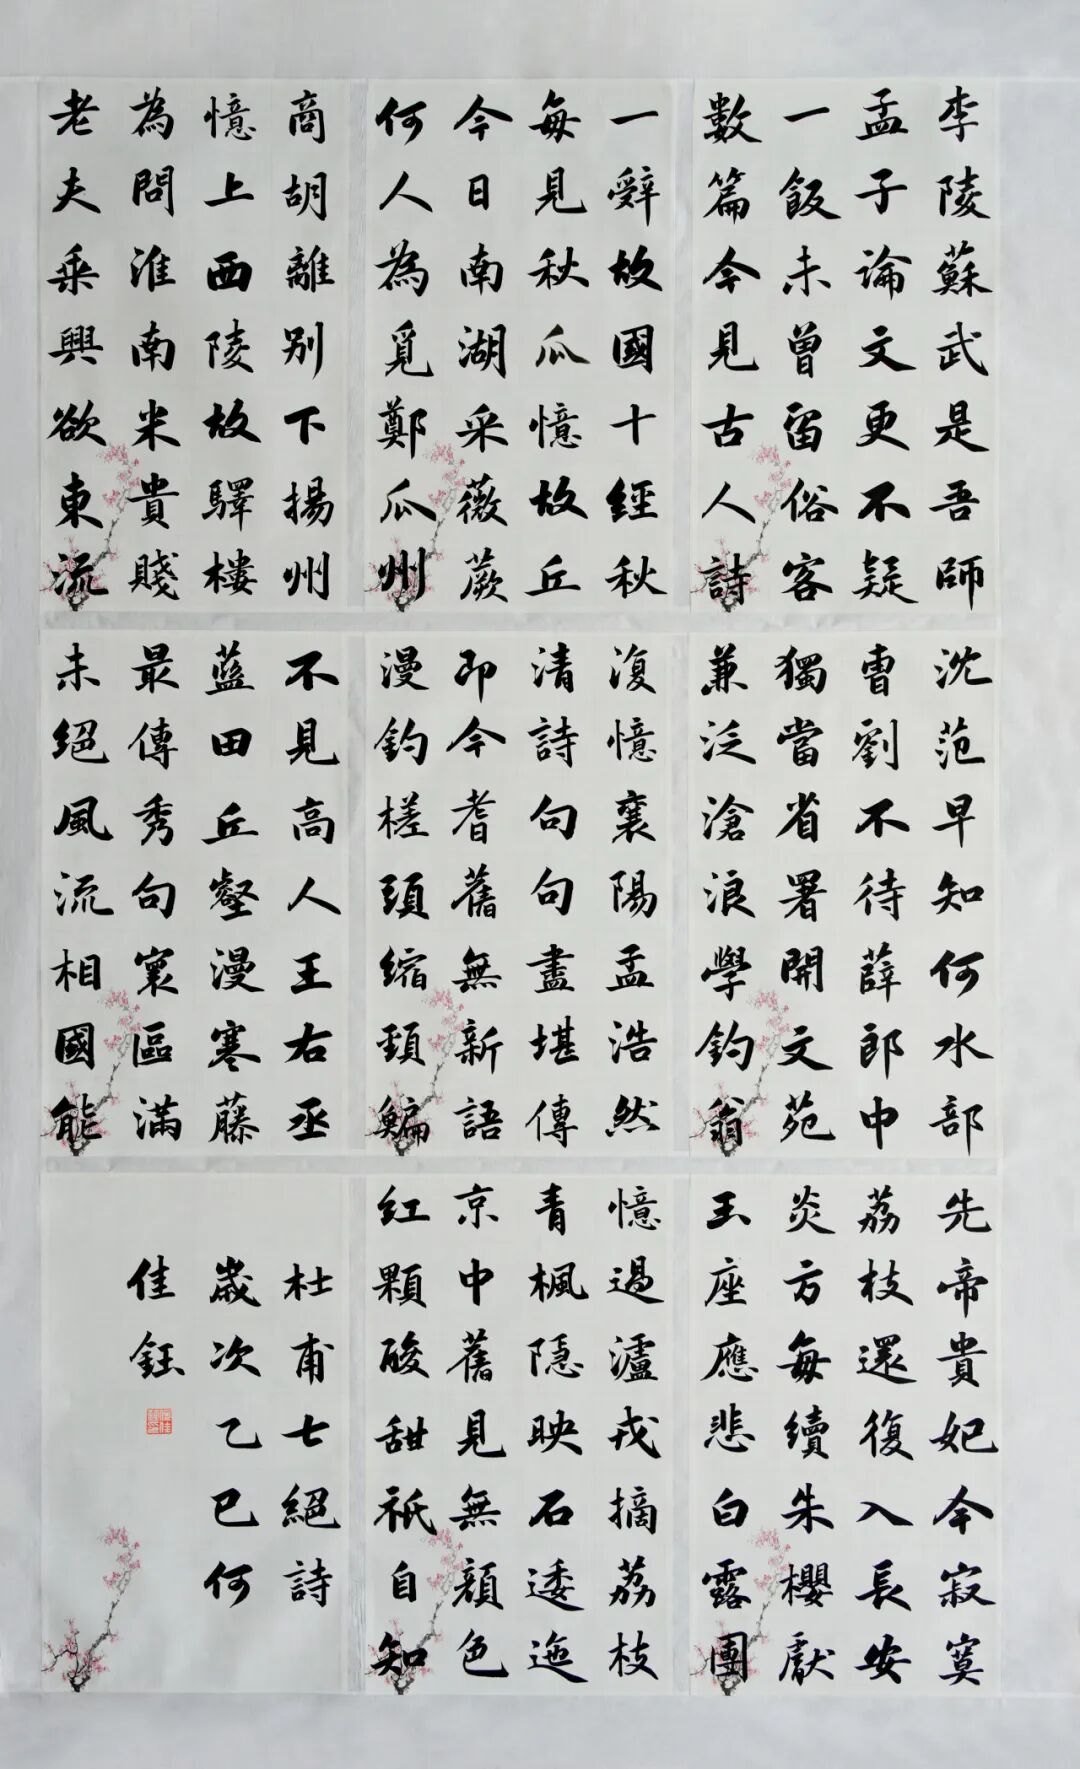 李陵蘇武是吾師
孟子論文更不疑
一飯未曾留俗客
數篇今見古人詩
一辭故國十經秋
每見秋瓜憶故丘
今日南湖采薇蕨
何人為覓鄭瓜州
商胡離別下揚州
憶上西陵故驛樓
為問淮南米貴賤
老夫乘興欲東流
沈范早知何水部
曹劉不待薛郎中
獨當省署開文苑
兼泛滄浪學釣翁
復憶襄陽孟浩然
清詩句句盡堪傳
即今耆舊無新語
漫釣槎頭縮頸鯿
不見高人王右丞
藍田丘壑漫寒藤
最傳秀句寰區滿
未絕風流相國能
先帝貴妃今寂寞
荔枝還復入長安
炎方每續朱櫻獻
玉座應悲白露團
憶過瀘戎摘荔枝
青楓隱映石逶迤
京中舊見無顏色
紅顆酸甜祇自知
杜甫七絕詩
歲次乙巳何
佳鈺